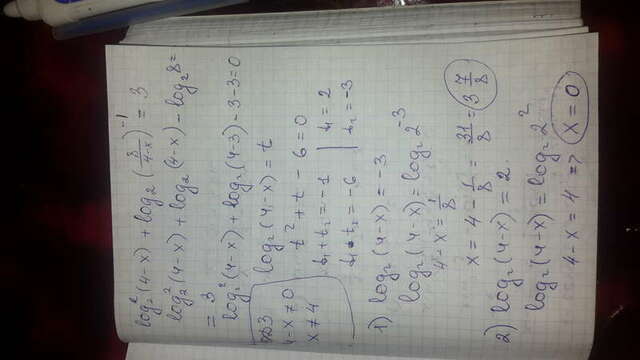 log₂²(4-x) + log₂(8/(4-x))⁻¹ = 3
log₂²(4-x) + log₂(4-x) - log₂8 =
= 3
log₂²(4-x) + log₂(4-3) - 3 - 3 = 0
ОДЗ
4-x ≠ 0
x ≠ 4
log₂(4-x) = t
t² + t - 6 = 0
t₁ + t₂ = -1 | t₁ = 2
t₁ • t₂ = -6 | t₂ = -3
1) log₂(4-x) = -3
log₂(4-x) = log₂2⁻³
4-x = 1/8
x = 4 - 1/8 = 31/8 = 3 7/8
2) log₂(4-x) = 2.
log₂(4-x) = log₂2²
4-x = 4 => x = 0